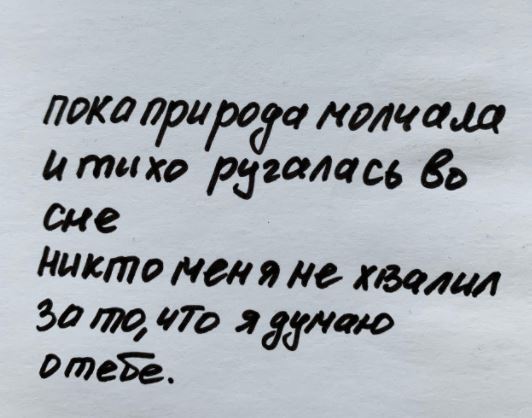 пока природа молчала
и тихо ругалась во
сне
никто меня не хвалил
за то, что я думаю
о тебе.